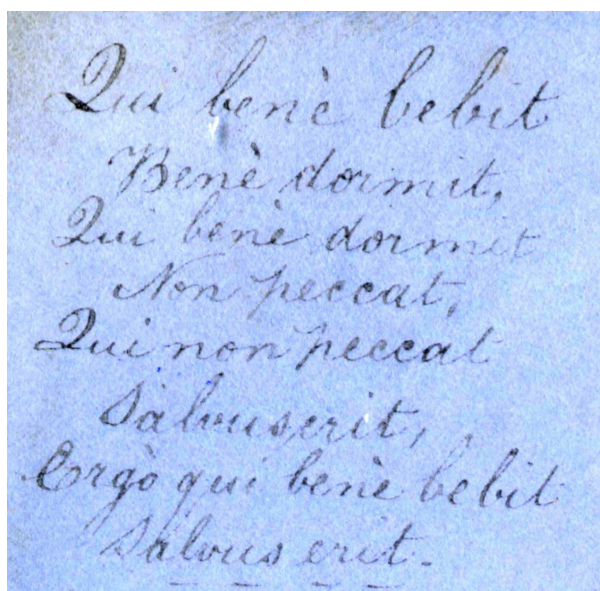 Qui benè bebit
Benè dormit,
Qui benè dormit
Non peccat,
Qui non peccat
Salvus erit,
Ergò qui benè bebit
Salvus erit.